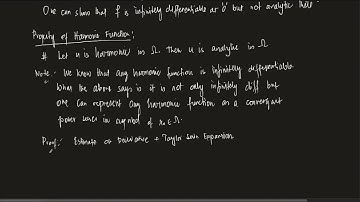 One can show that f is infinitely differentiable at 'b' but not analytic there.
Property of Harmonic Function:
# Let u is harmonic in Ω. Then u is analytic in Ω
Note: We know that any harmonic function is infinitely differentiable
What the above says is it is not only infinitely diff but
one can represent any harmonic function as a convergent
power series in a nhd of x₀ ∈ Ω.
Proof: Estimate on Derivative + Taylor Series Expansion